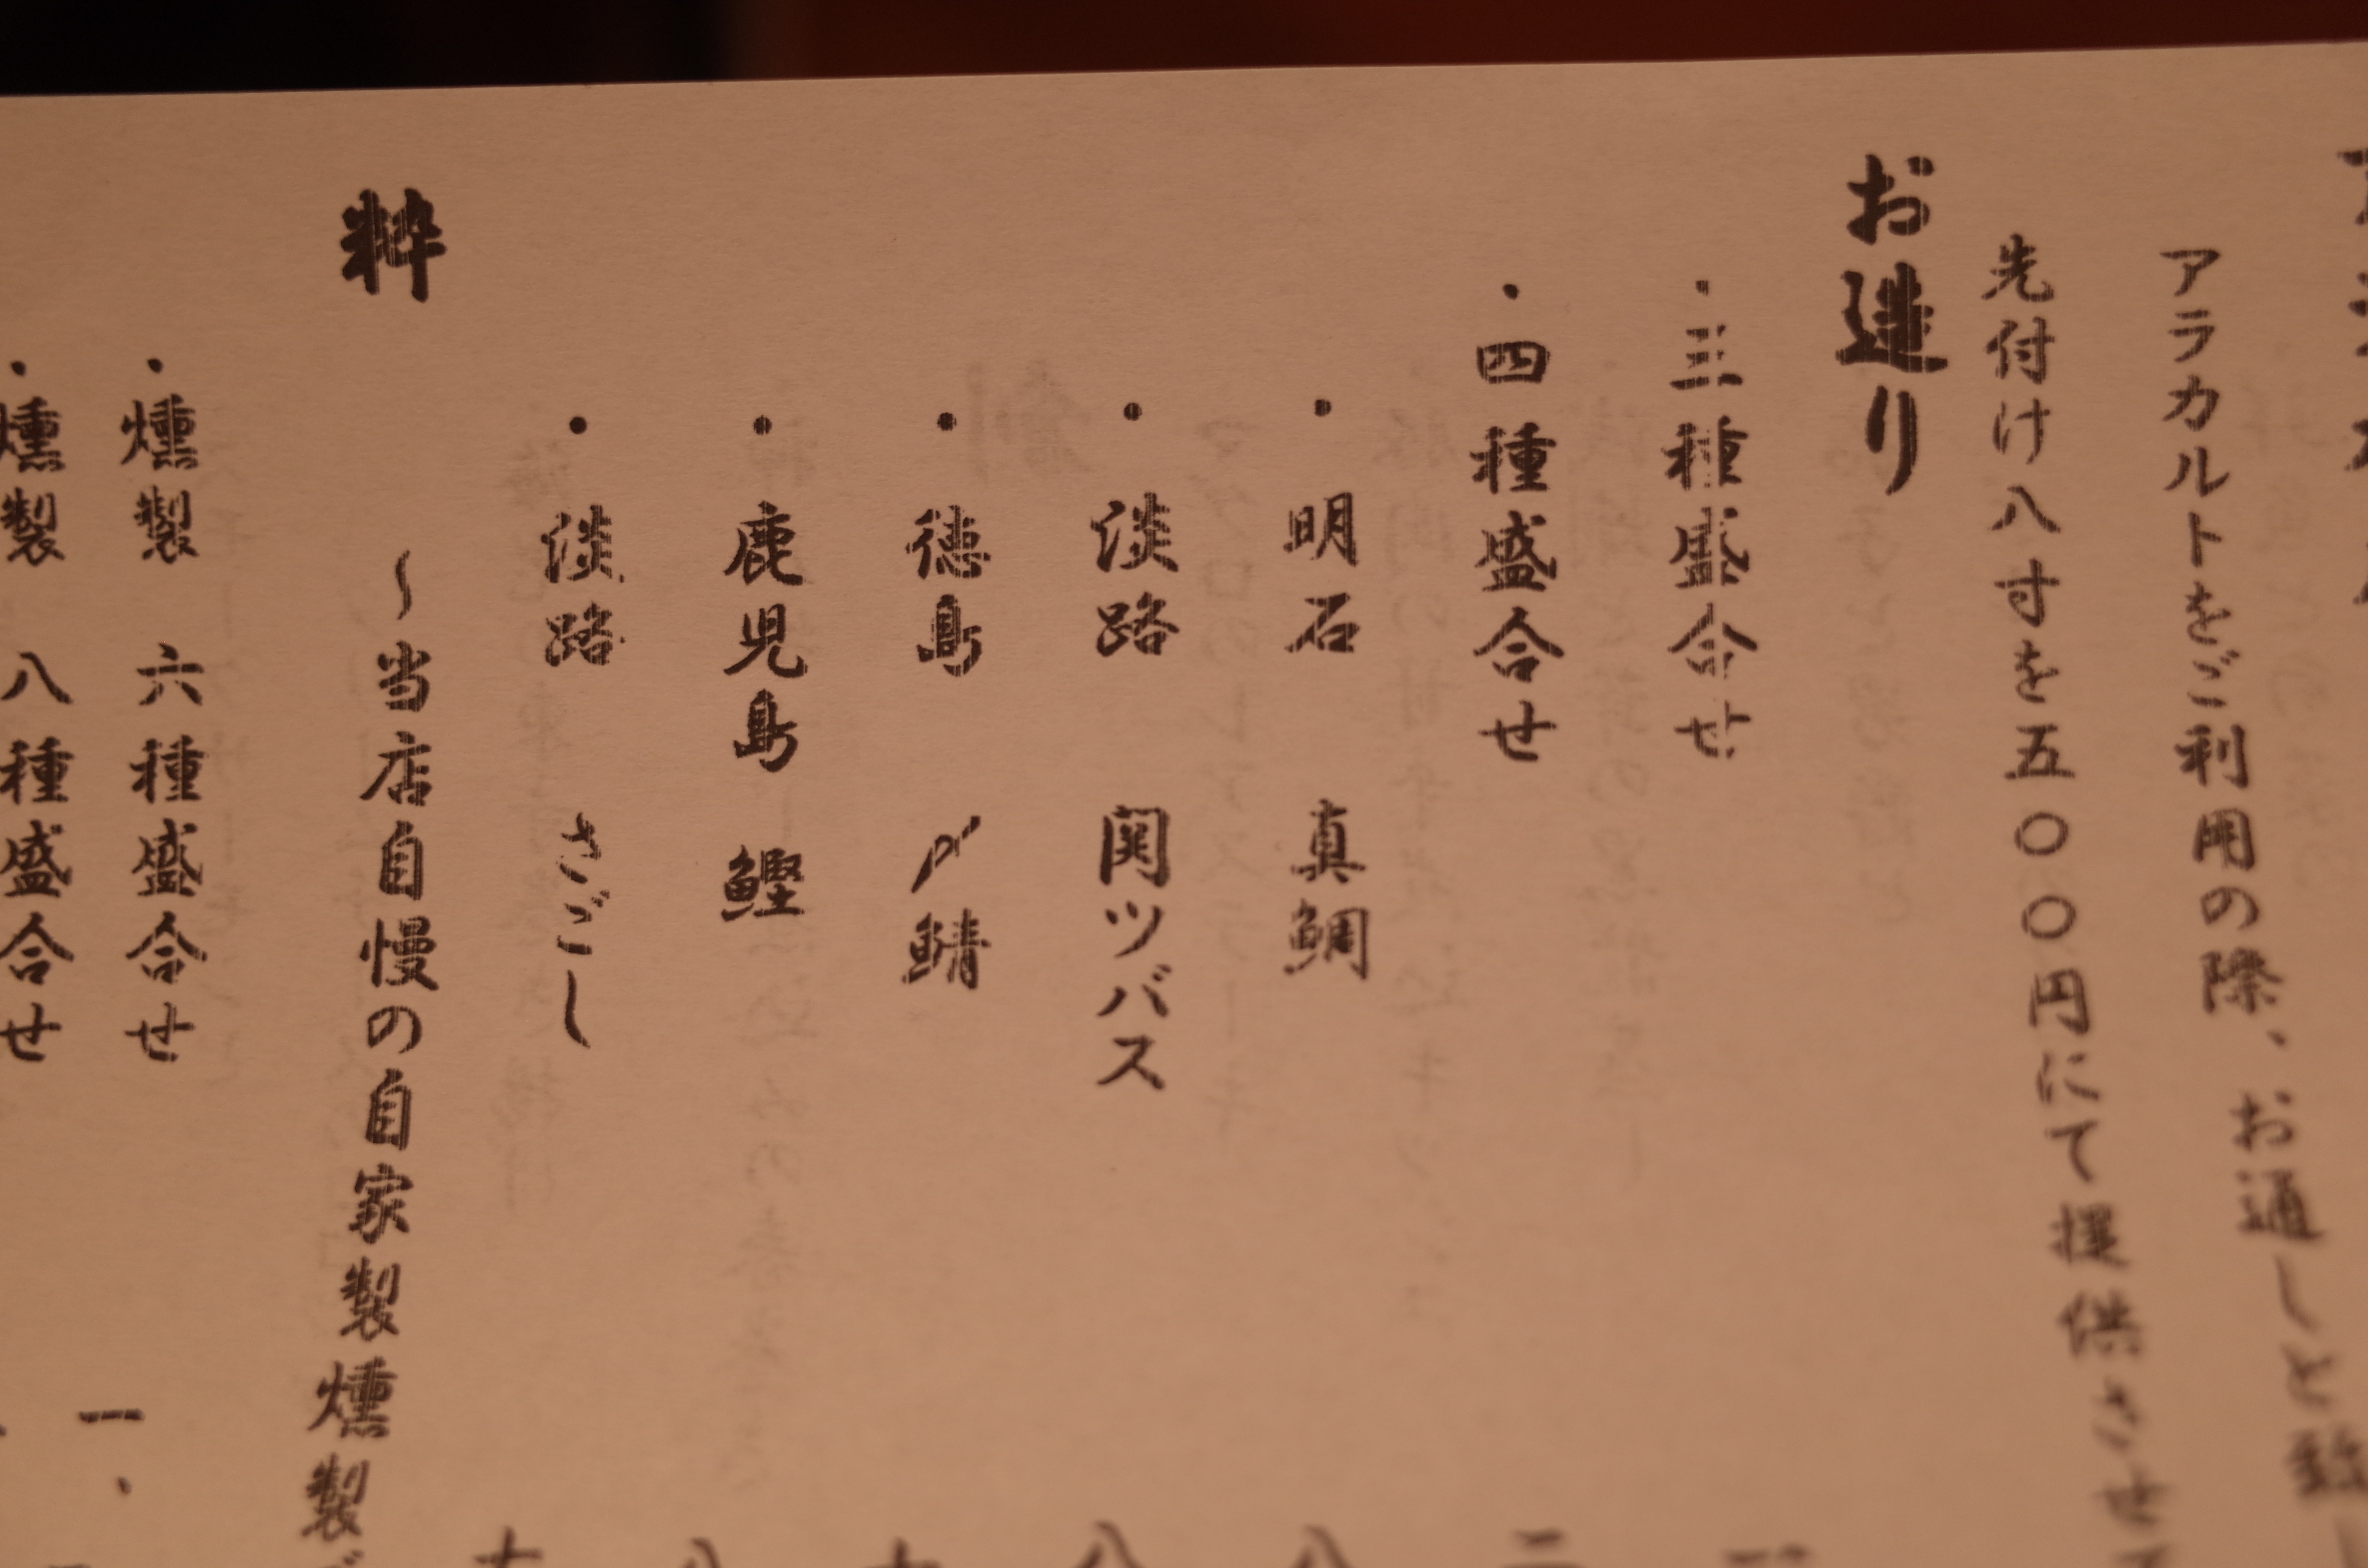 アラカルトをご利用の際、お通しと致し
先付け八寸を五〇〇円にて提供させて
お造り
・三種盛合せ
・四種盛合せ 二
・明石 真鯛 八
・淡路 関ツバス 八
・徳島 〆鯖
・鹿児島 鰹 八
・淡路 さごし
粋
〜当店自慢の自家製燻製
・燻製 六種盛合せ 一、
・燻製 八種盛合せ